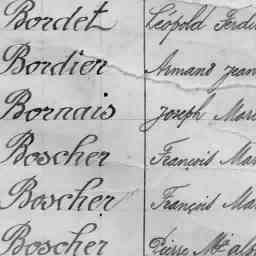 Bordet Léopold Ferd
Bordier Armand Jean
Bornais Joseph Mari
Boscher François Mar
Boscher François Ma
Boscher Pierre Mie